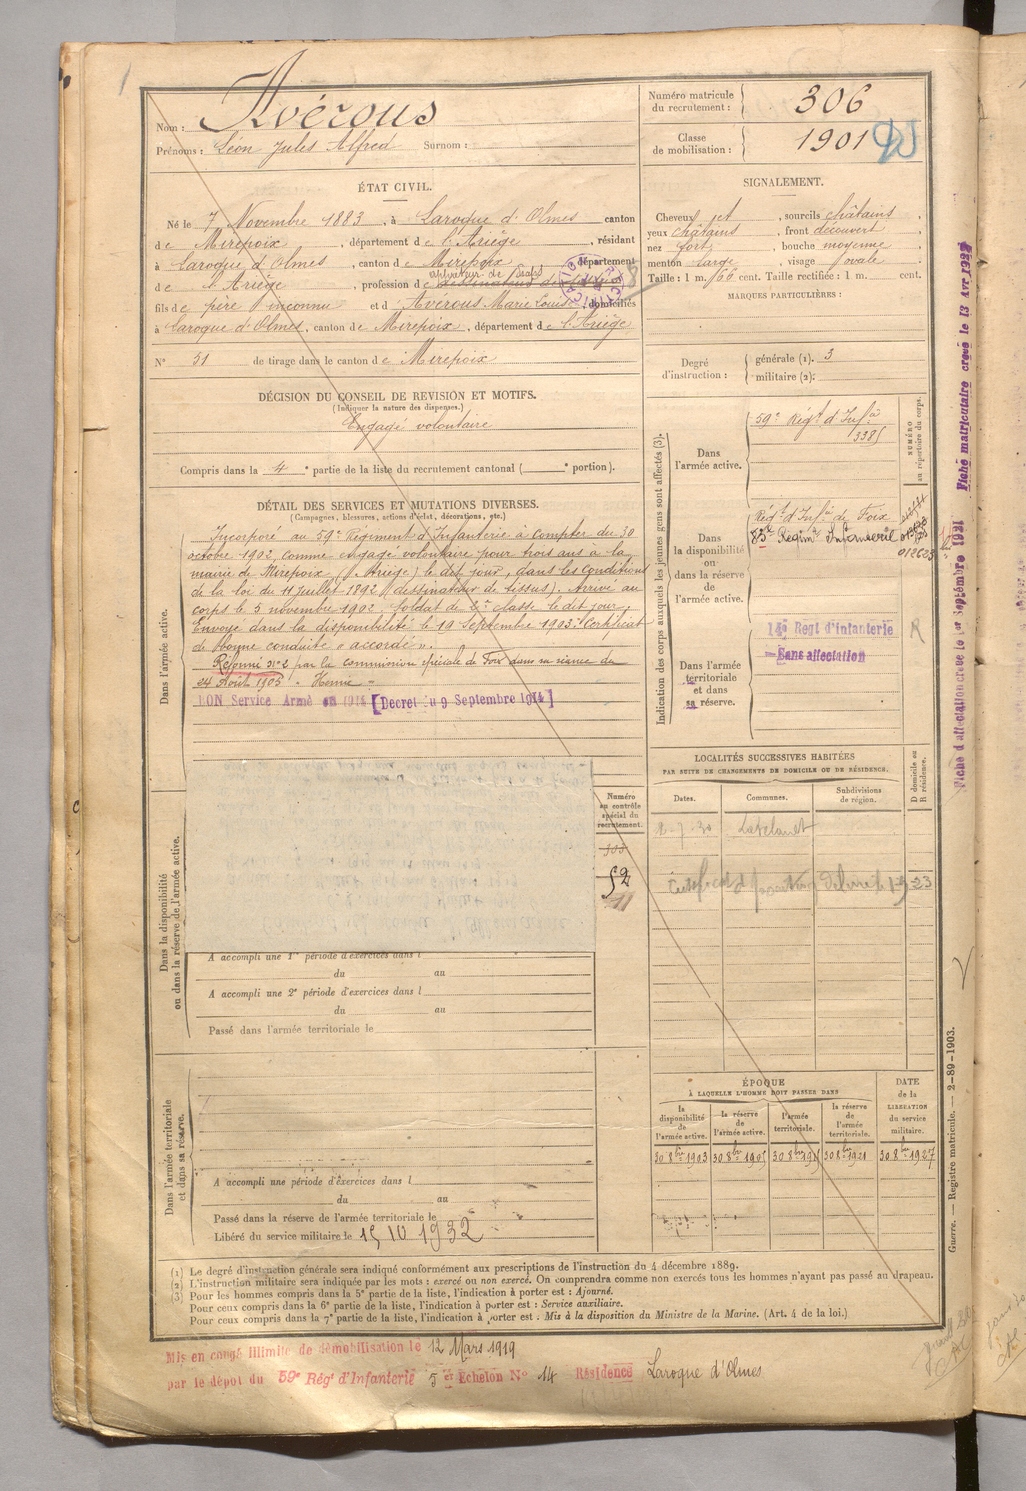 Nom : Avérous
Prénoms : Léon Jules Alfred Surnom :
Numéro matricule du recrutement : 306
Classe de mobilisation : 1901
ÉTAT CIVIL.
Né le 7 Novembre 1883, à Laroque d'Olmes canton
de Mirepoix, département de l'Ariège, résidant
à Laroque d'Olmes, canton de Mirepoix département
de l'Ariège, profession de
fils de père inconnu et d'Averous Marie Louise domiciliés
à Laroque d'Olmes, canton de Mirepoix, département de l'Ariège
N° 51 de tirage dans le canton de Mirepoix
SIGNALEMENT.
Cheveux jet, sourcils châtains,
yeux châtains, front découvert,
nez fort, bouche moyenne,
menton large, visage ovale.
Taille : 1 m. 66 cent. Taille rectifiée : 1 m. cent.
MARQUES PARTICULIÈRES :
Degré d'instruction : générale (1). 3
militaire (2).
DÉCISION DU CONSEIL DE REVISION ET MOTIFS.
(Indiquer la nature des dispenses.)
Engagé volontaire
Compris dans la 4e partie de la liste du recrutement cantonal ( e portion).
DÉTAIL DES SERVICES ET MUTATIONS DIVERSES.
(Campagnes, blessures, actions d'éclat, décorations, etc.)
Dans l'armée active.
Incorporé au 59e Régiment d'Infanterie à compter du 30
octobre 1902, comme engagé volontaire pour trois ans à la
mairie de Mirepoix (Ariège) le dit jour, dans les conditions
de la loi du 11 juillet 1892 (dessinateur de tissus). Arrivé au
corps le 5 novembre 1902. Soldat de 2e classe le dit jour.
Envoyé dans la disponibilité le 19 Septembre 1903. Certificat
de bonne conduite « accordé ».
Réformé n° 2 par la commission spéciale de Foix dans sa séance du
24 Août 1905
BON Service Armé en 1914 [Decret du 9 Septembre 1914]
Indication des corps auxquels les jeunes gens sont affectés (3).
NUMÉRO au répertoire du corps.
Dans l'armée active.
59e Régt d'Infie
Dans la disponibilité ou dans la réserve de l'armée active.
Régt d'Infie de Foix
83e
012623
Dans l'armée territoriale et dans sa réserve.
14e Regt d'infanterie
Sans affectation
LOCALITÉS SUCCESSIVES HABITÉES
PAR SUITE DE CHANGEMENTS DE DOMICILE OU DE RÉSIDENCE.
Dates. Communes. Subdivisions de région. D domicile ou R résidence.
2-7-30 Lavelanet
Dans la disponibilité ou dans la réserve de l'armée active.
Numéro au contrôle spécial du recrutement.
52
A accompli une 1re période d'exercices dans l
du au
A accompli une 2e période d'exercices dans l
du au
Passé dans l'armée territoriale le
Dans l'armée territoriale et dans sa réserve.
A accompli une période d'exercices dans l
du au
Passé dans la réserve de l'armée territoriale le
Libéré du service militaire le 15 10 1932
ÉPOQUE
À LAQUELLE L'HOMME DOIT PASSER DANS
la disponibilité de l'armée active. la réserve de l'armée active. l'armée territoriale. la réserve de l'armée territoriale.
DATE de la LIBÉRATION du service militaire.
30 8bre 1903 30 8bre 1905 30 8bre 1915 30 8bre 1921 30 8bre 1927
(1) Le degré d'instruction générale sera indiqué conformément aux prescriptions de l'instruction du 4 décembre 1889.
(2) L'instruction militaire sera indiquée par les mots : exercé ou non exercé. On comprendra comme non exercés tous les hommes n'ayant pas passé au drapeau.
(3) Pour les hommes compris dans la 5e partie de la liste, l'indication à porter est : Ajourné.
Pour ceux compris dans la 6e partie de la liste, l'indication à porter est : Service auxiliaire.
Pour ceux compris dans la 7e partie de la liste, l'indication à porter est : Mis à la disposition du Ministre de la Marine. (Art. 4 de la loi.)
Mis en congé illimité de démobilisation le 12 Mars 1919
par le dépôt du 59e Régt d'Infanterie 5e Echelon N° 14 Résidence Laroque d'Olmes
Guerre. — Registre matricule. — 2-89-1903.
Fiche d'affectation créée le 1er Septembre 1921
Fiche matriculaire créée le 13 Avr 1927